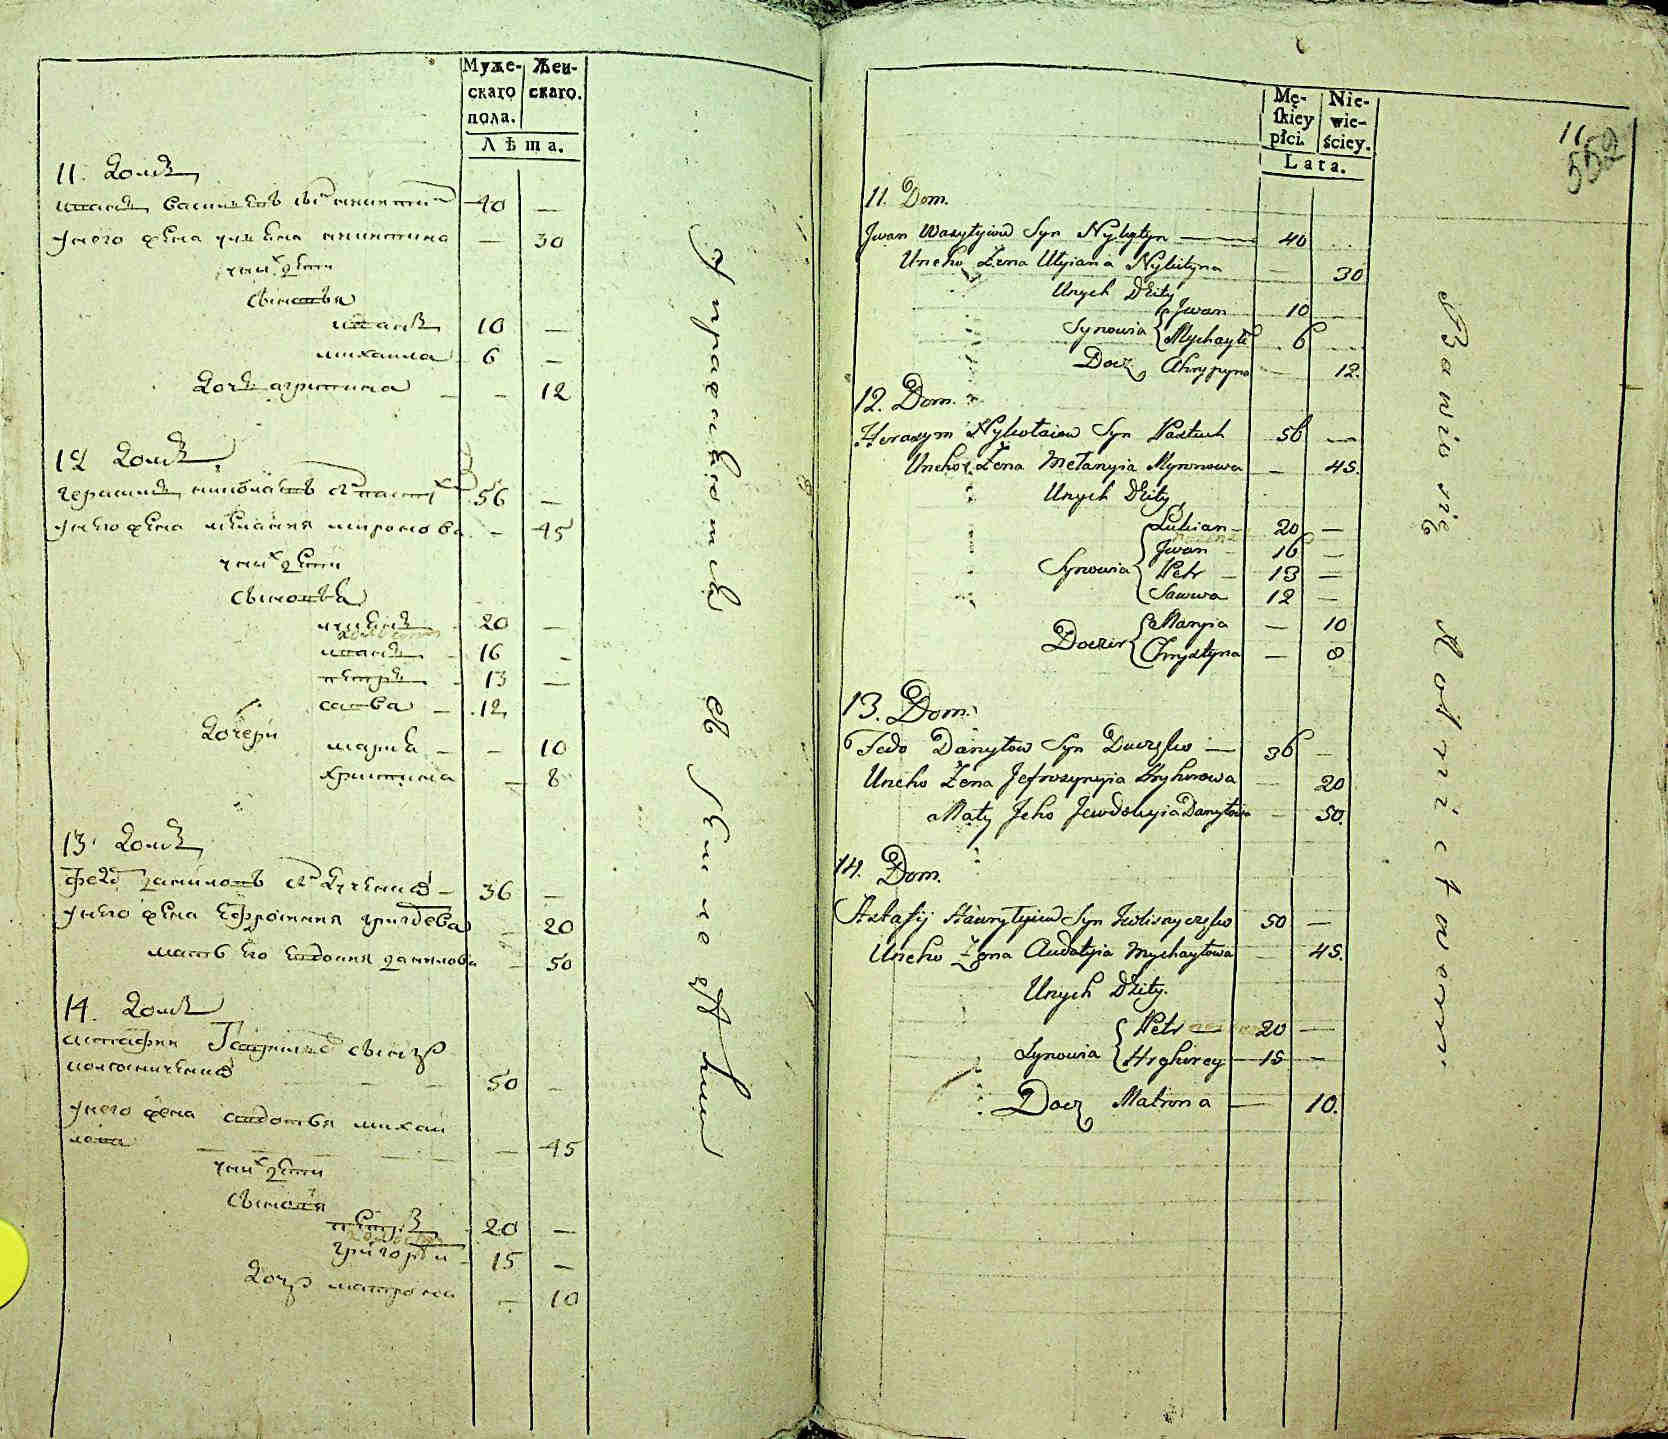 Муже-
скаго
пола.
Жен-
скаго.
Лѣта.
11. домъ
иванъ василиевъ сынъ никитинъ 40 —
у него жена улиена никитина — 30
у них дети
сыновья
иванъ 10 —
михаила 6 —
дочь агрипина — 12
12 домъ
герасимъ николаевъ сынъ пастухъ 56 —
у него жена мелания миронова — 45
у них дети
сыновья
лукянъ 20 —
иванъ 16 —
петръ 13 —
савва 12
дочери
мария — 10
христина — 8
13 домъ
федо даниловъ сын 36 —
у него жена ефросиния — 20
мать его евдокия данилова — 50
14. домъ
астафии сынъ
50 —
у него жена авдотья михаи
лова — 45
у них дети
сыновя
петръ 20 —
григории 15 —
дочь матрона — 10
упражняются въ
Mę-
skiey
płci.
Nie-
wie-
ściey.
Lata.
11
552
11. Dom.
Jwan Wasylyiow Syn Nykytyn 40
Uneho Żena Ulyiana Nykityna — 30
Unych Dżity
Synowia
Jwan 10
Mychayło 6
Docz Ahrypyna — 12.
12. Dom.
Herasym Nykołaiow Syn Pastuch 56 —
Uneho Żena Mełanyia Myronowa — 45.
Unych Dżity
Synowia
Lukian 20 —
Jwan 16 —
Petr 13 —
Sawwa 12 —
Doczir
Maryia — 10
Chrystyna — 8
13. Dom.
Fedo Danyłow Syn 36 —
Uneho Żena Jefrozynyia Hryhorowa — 20
Maty Jeho Jewdokyia Danyłowa — 50.
14. Dom.
Astafij Hawryłyiow Syn 50 —
Uneho Żena Audotyia Mychayłowa — 45.
Unych Dżity.
Synowia
Petr 20 —
Hryhorey 15 —
Docz Matrona — 10.
Bawią się Rolnictwem